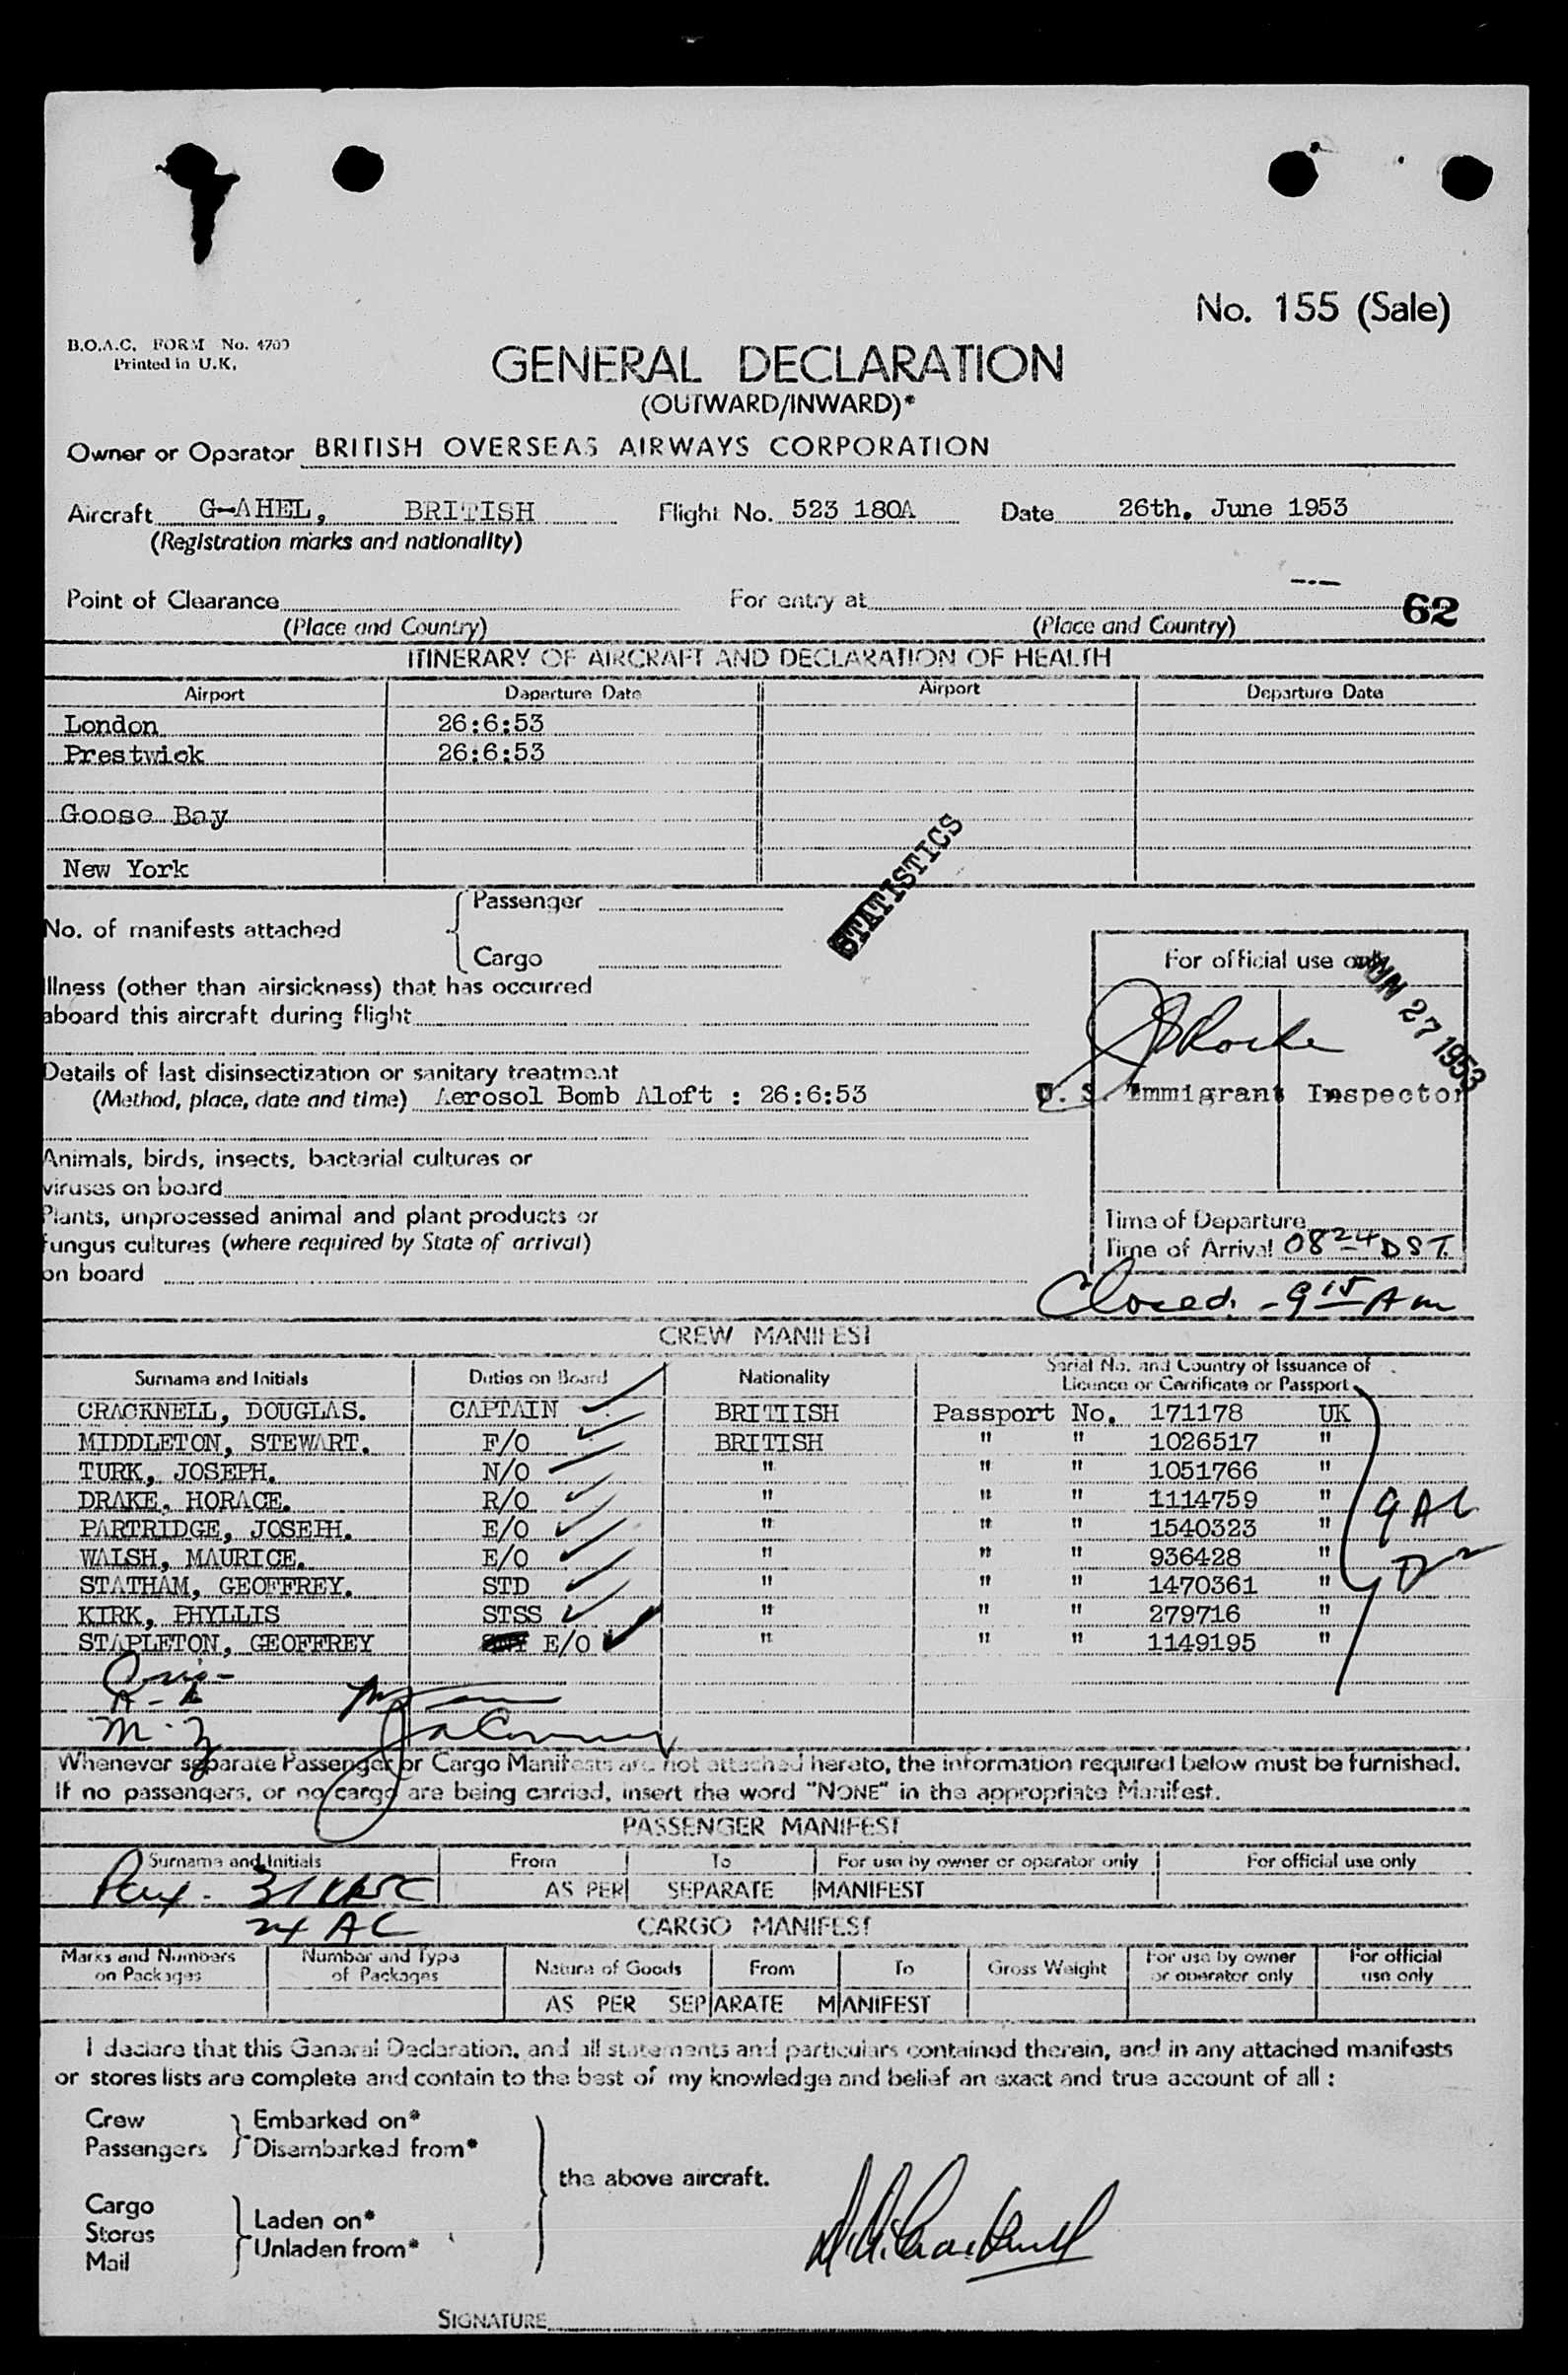 No. 155 (Sale)
B.O.A.C. FORM No. 4700
Printed in U.K.
GENERAL DECLARATION
(OUTWARD/INWARD)*
Owner or Operator BRITISH OVERSEAS AIRWAYS CORPORATION
Aircraft G-AHEL, BRITISH Flight No. 523 180A Date 26th. June 1953
(Registration marks and nationality)
Point of Clearance For entry at 62
(Place and Country) (Place and Country)
ITINERARY OF AIRCRAFT AND DECLARATION OF HEALTH
Airport Departure Date Airport Departure Date
London 26:6:53
Prestwick 26:6:53
Goose Bay
New York
STATISTICS
No. of manifests attached
Passenger
Cargo
Illness (other than airsickness) that has occurred
aboard this aircraft during flight
Details of last disinsectization or sanitary treatment
(Method, place, date and time) Aerosol Bomb Aloft : 26:6:53
Animals, birds, insects, bacterial cultures or
viruses on board
Plants, unprocessed animal and plant products or
fungus cultures (where required by State of arrival)
on board
For official use only
JUN 27 1953
U. S. Immigrant Inspector
Time of Departure
Time of Arrival 0824 DST.
Closed. - 9 15 Am
CREW MANIFEST
Surname and Initials Duties on Board Nationality Serial No. and Country of Issuance of
Licence or Certificate or Passport
CRACKNELL, DOUGLAS. CAPTAIN BRITIISH Passport No. 171178 UK
MIDDLETON, STEWART. F/O BRITISH " " 1026517 "
TURK, JOSEPH. N/O " " " 1051766 "
DRAKE, HORACE. R/O " " " 1114759 "
PARTRIDGE, JOSEPH. E/O " " " 1540323 "
WALSH, MAURICE. E/O " " " 936428 "
STATHAM, GEOFFREY. STD " " " 1470361 "
KIRK, PHYLLIS STSS " " " 279716 "
STAPLETON, GEOFFREY E/O " " " 1149195 "
9 AC
Whenever separate Passenger or Cargo Manifests are not attached hereto, the information required below must be furnished.
If no passengers, or no cargo are being carried, insert the word "NONE" in the appropriate Manifest.
PASSENGER MANIFEST
Surname and Initials From To For use by owner or operator only For official use only
AS PER SEPARATE MANIFEST
24 AC
CARGO MANIFEST
Marks and Numbers on Packages Number and Type of Packages Nature of Goods From To Gross Weight For use by owner or operator only For official use only
AS PER SEPARATE MANIFEST
I declare that this General Declaration, and all statements and particulars contained therein, and in any attached manifests
or stores lists are complete and contain to the best of my knowledge and belief an exact and true account of all :
Crew Embarked on*
Passengers Disembarked from*
the above aircraft.
Cargo
Stores Laden on*
Mail Unladen from*
SIGNATURE